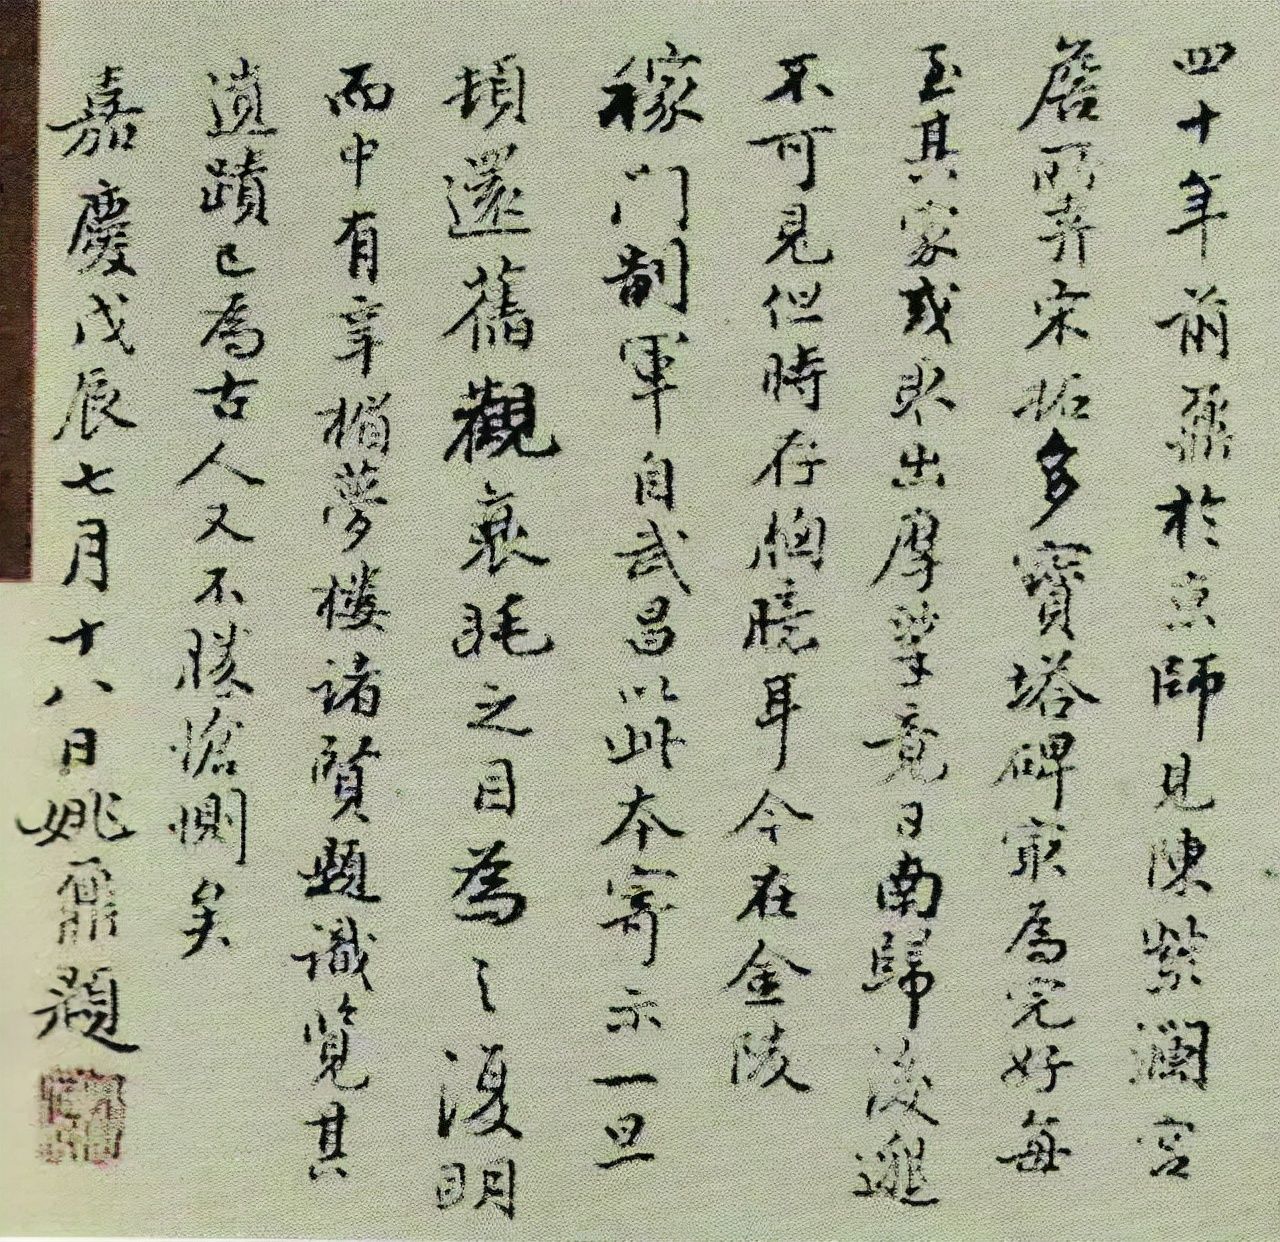 四十年前鼐於京師見陳紫瀾宮
詹所弆宋拓多寶塔碑寂為完好每
至其家或即出摩挲竟日南歸後邈
不可見但時存胸臆耳今在金陵
稼門制軍自武昌以此本寄示一旦
頓還舊觀衰眊之目為之復明
而中有幸楣夢樓諸賢題識覽其
遺蹟已為古人又不勝愴惻矣
嘉慶戊辰七月十八日姚鼐題